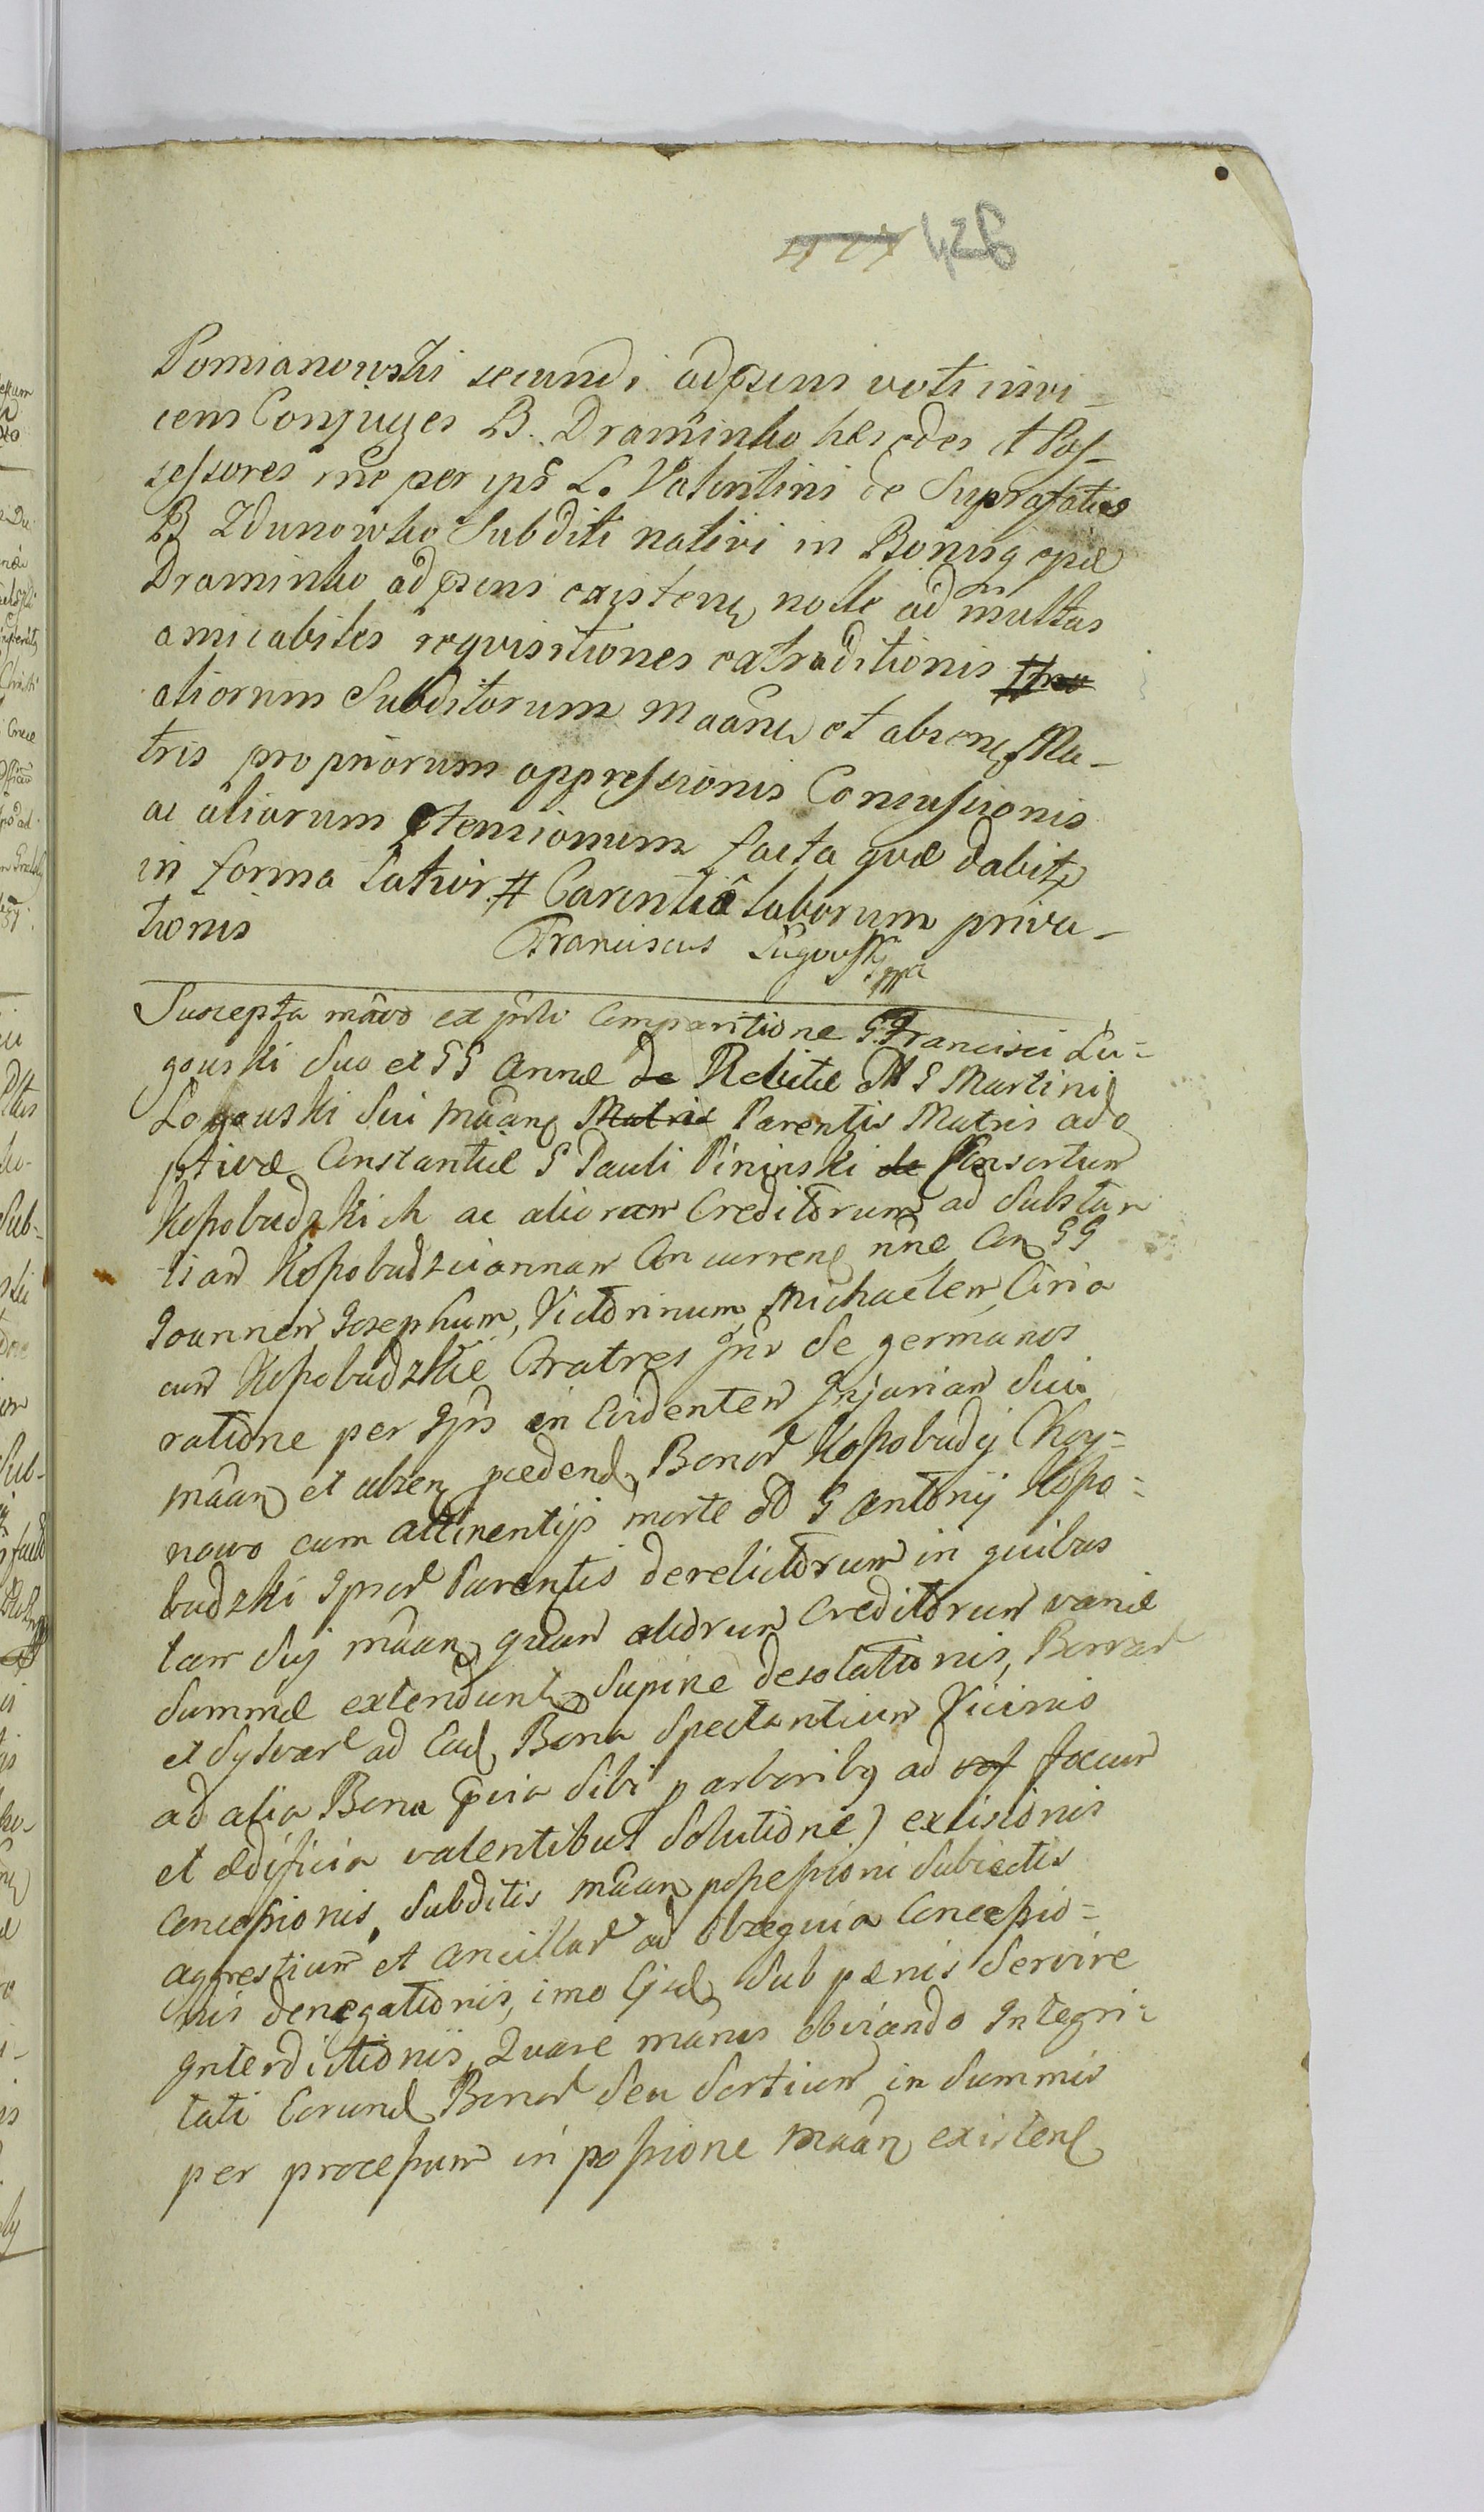 427 426
Pomianowski secundi adpræns voti invi-
cem Conjuges B. Draminko hæredes et Pos-
sessores rñe per ips L. Valentini de Suprafatis
B Zdunowko Subditi nativi in Bonisq
Draminko ad præns existen, nolle ad multas
amicabiles requisitiones extraditionis
aliorum Subditorum Maanu et absen, Ma-
tris propriorum oppressionis Concussionis
ac aliarum ptensionum facta quæ dabit
in forma Latior # Carentiâ laborum priva-
tionis Franciscus Lugowsk mpa
Suscepta mãvo ex Comparitione G. Francisci Lu-
gouski Suo et GG Annæ de Relictæ M G Martini
Logouski Sui Maan Matris Parentis Matris ado
ptivæ Constantiæ G Pauli Pininski de Consortum
Kossobudzkich ac aliorum Creditorum ad Substan
tiam Kossobudzciannam Concurren nñe Con GG
Joannem Josephum, Victorinum, Michaelem, Ciria
cum Kossobudzkie Fratres Inv Se germanos
ratione per Ips in Evidentem Injuriam Sui
Maan et absen præden Bonor Kossobudy Choy=
nowo cum attinentijs morte G Antonij Kosso=
budzki Ipsor Parentis derelictorum in quibus
tam Sui maan quam aliorum Creditorum variæ
Summæ extendunt Supine desolationis, Borrar
et Sylvar ad Ead Bona Spectantium Vicinis
ad alia Bona Sibi p arboribq ad focum
et ædificia valentibus Solutione) excisionis
Concessionis, Subditis maan possessioni Subiectis
aggrestium et Ancillar ad Obsequia Concessio=
nis denegationis, imo Ejsd Sub pænis Servire
Interdictionis, Quare mãns obviando Integri=
tati Eorund Bonor Seu Sortium in Summis
per processum in possione maan existen